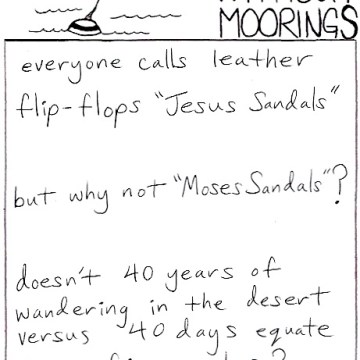 MOORINGS
everyone calls leather
flip-flops "Jesus Sandals"
but why not "Moses Sandals"?
doesn't 40 years of
wandering in the desert
versus 40 days equate